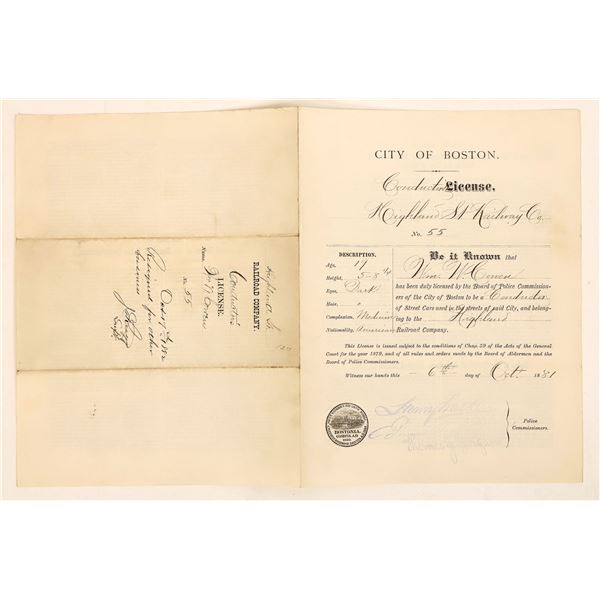 CITY OF BOSTON.
Conductors License.
Highland St. Railway Co.
No. 55
DESCRIPTION.
Age, 19
Height, 5-8 3/4
Eyes, Dark
Hair, "
Complexion, Medium
Nationality, American
Be it Known that
Wm. W. Cowen
has been duly licensed by the Board of Police Commission-
ers of the City of Boston to be a Conductor
of Street Cars used in the streets of said City, and belong-
ing to the Highland
Railroad Company.
This License is issued subject to the conditions of Chap. 59 of the Acts of the General
Court for the year 1879, and of all rules and orders made by the Board of Aldermen and the
Board of Police Commissioners.
Witness our hands this 6th day of Oct. 1881
Police
Commissioners.
BOSTONIA.
CONDITA AD
1630.
Highland St.
RAILROAD COMPANY.
Conductors
LICENSE.
Name, Wm W Cowen
No. 55
Resigned for other
business
Supt